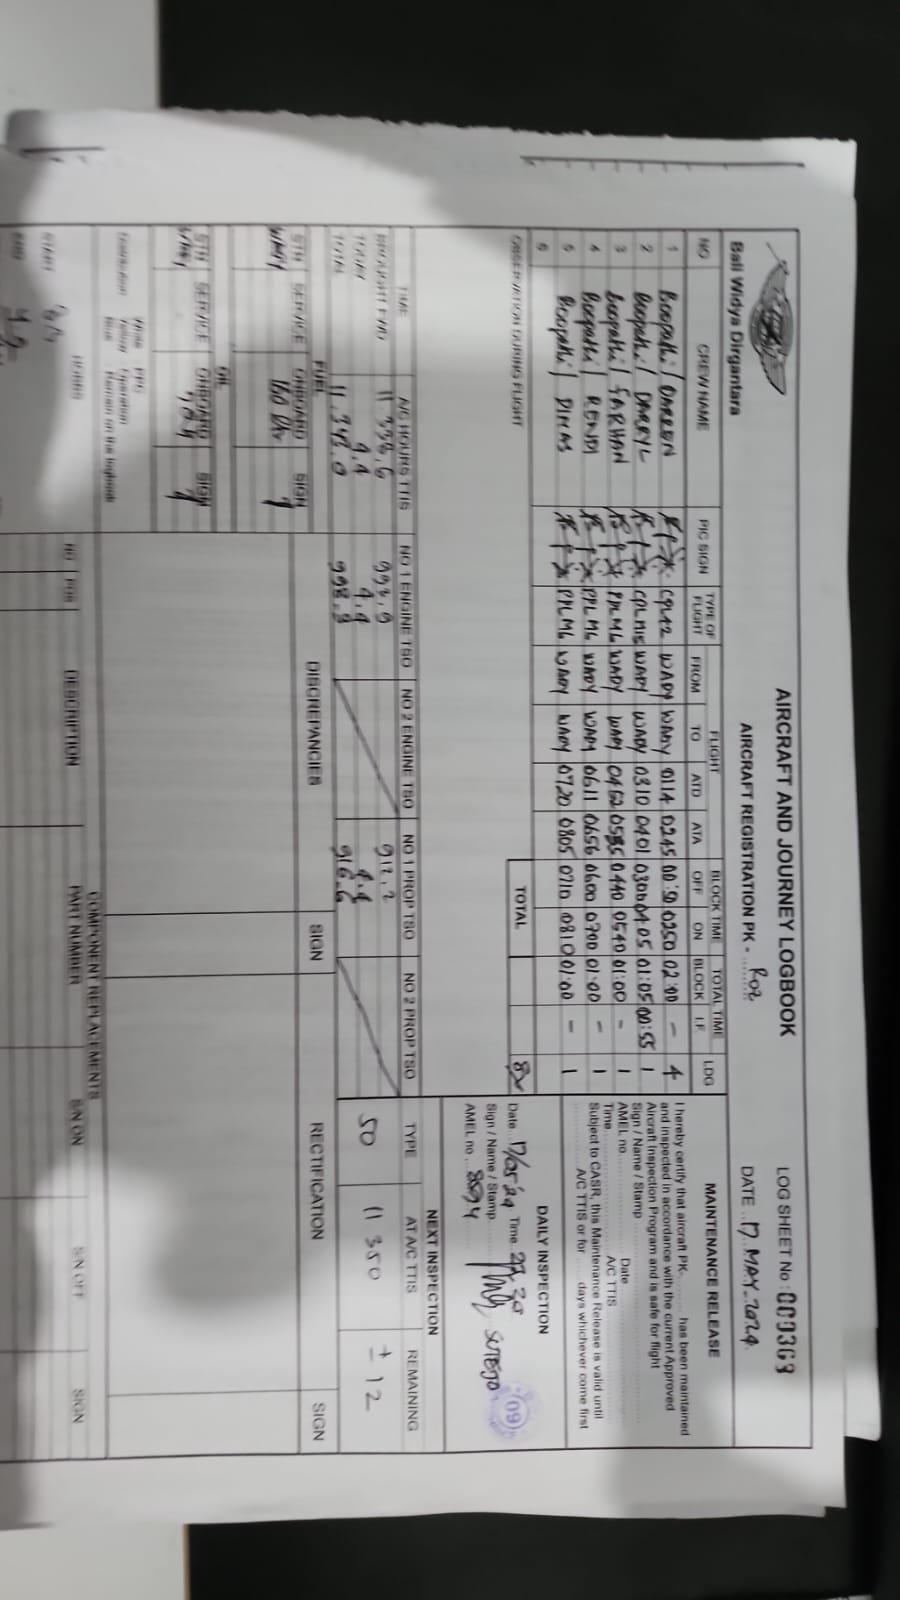 AIRCRAFT AND JOURNEY LOGBOOK
LOG SHEET No : 000363
Bali Widya Dirgantara
AIRCRAFT REGISTRATION PK - ROZ
DATE : 17 MAY 2024
NO CREW NAME PIC SIGN TYPE OF FLIGHT FLIGHT FROM TO ATD ATA BLOCK TIME OFF ON TOTAL TIME BLOCK I.F. LDG
1 Boopathi / DARREN CPL12 WADY WADY 0114 0245 00:50 0250 02:00 - 4
2 Boopathi / DARRYL CPLM15 WADY WADY 0310 0401 0300 0405 01:05 00:55 1
3 Boopathi / FARHAN PPLM6 WADY WADY 0452 0535 0440 0540 01:00 - 1
4 Boopathi / RENDI PPLM6 WADY WADY 0611 0656 0600 0700 01:00 - 1
5 Boopathi / DIMAS PPLM6 WADY WADY 0720 0805 0710 0810 01:00 - 1
6
TOTAL 8x
OBSERVATION DURING FLIGHT
MAINTENANCE RELEASE
I hereby certify that aircraft PK- has been maintained
and inspected in accordance with the current Approved
Aircraft Inspection Program and is safe for flight
Sign / Name / Stamp
AMEL no. Date
Time A/C TTIS
Subject to CASR, this Maintenance Release is valid until
A/C TTIS or for days whichever come first
DAILY INSPECTION
Date 17/05'24 Time 22.30
Sign / Name / Stamp SUTEJO 09
AMEL no. 8594
TIME A/C HOURS TTIS NO 1 ENGINE TSO NO 2 ENGINE TSO NO 1 PROP TSO NO 2 PROP TSO
BROUGHT FWD 11.338,6 993.9 912.2
TODAY 4.4 4.4 4.4
TOTAL 11.343.0 998.3 916.6
NEXT INSPECTION
TYPE AT A/C TTIS REMAINING
50 11350 ± 12
FUEL
STN SERVICE ONBOARD SIGN
WADY
OIL
STN SERVICE ONBOARD SIGN
WADY
DISCREPANCIES SIGN RECTIFICATION SIGN
White : PPC
Yellow : Operation
Blue : Remain on the logbook
COMPONENT REPLACEMENTS
NO POS DESCRIPTION PART NUMBER S/N ON S/N OFF SIGN
HOBBS
START
END